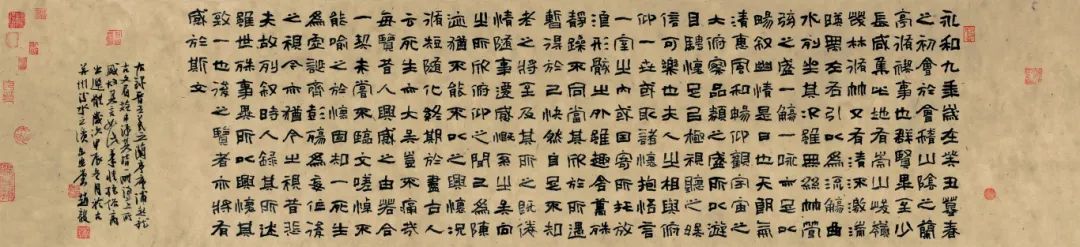 永和九年歲在癸丑暮春
之初會於會稽山陰之蘭
亭脩禊事也群賢畢至少
長咸集此地又有崇山峻嶺
茂林脩竹又有清流激湍
暎帶左右引以為流觴曲
水列坐其次雖無絲竹管
弦之盛一觴一詠亦足以
暢敘幽情是日也天朗氣
清惠風和暢仰觀宇宙之
大俯察品類之盛所以遊
目騁懷足以極視聽之娛
信可樂也夫人之相與俯
仰一世或取諸懷抱悟言
一室之內或因寄所託放
浪形骸之外雖趣舍萬殊
靜躁不同當其欣於所遇
暫得於己快然自足不知
老之將至及其所之既倦
情隨事遷感慨係之矣向
之所欣俯仰之間已為陳
迹猶不能不以之興懷況
脩短隨化終期於盡古人
云死生亦大矣豈不痛哉
每覽昔人興感之由若合
一契未嘗不臨文嗟悼不
能喻之於懷固知一死生
為虛誕齊彭殤為妄作後
之視今亦猶今之視昔悲
夫故列敘時人錄其所述
雖世殊事異所以興懷其
致一也後之覽者亦將有
感於斯文